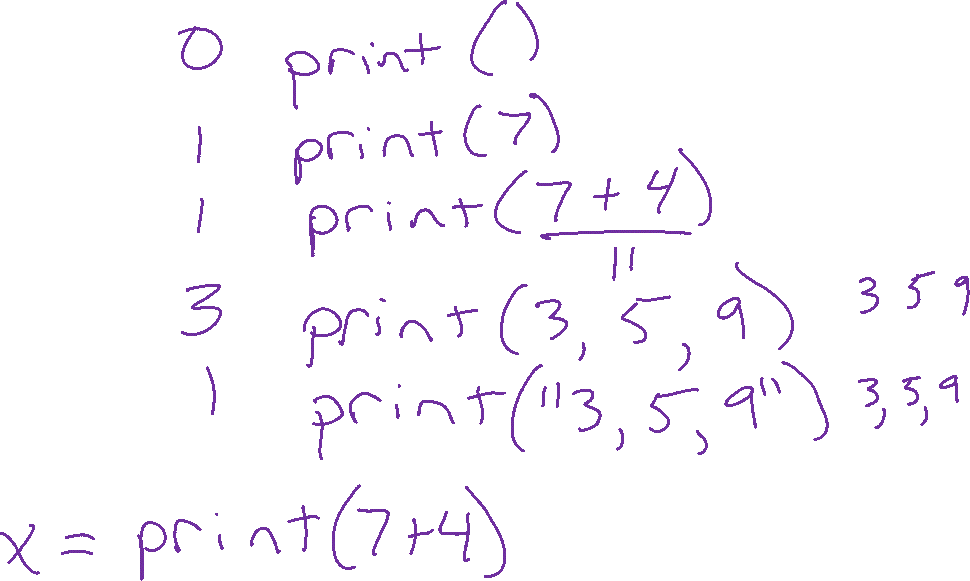 0 print()
1 print(7)
1 print(7+4)
11
3 print(3, 5, 9) 3 5 9
1 print("3, 5, 9") 3, 5, 9
x = print(7+4)